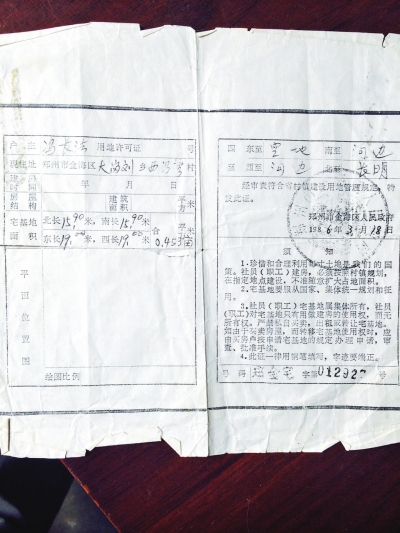 户主 冯长法 用地许可证 号
现住址 郑州市金海区大岗刘乡西 村
建房时间 年 月 日
房屋结构 建筑面积 平方米
宅基地面积 北长15.90米,南长15.90米 东长19. 米,西长19. 米 合 平方米 0.453亩
平面位置图
绘图比例
四至 东至空地 南至河边
西至河边 北至长明
经审查符合省村镇建设用地管理规定,特
发此证。
郑州市金海区人民政府
1986年3月18日
须 知
1.珍惜和合理利用每寸土地是我们的国
策。社员(职工)建房,必须按照村镇规划,
在指定地点建设,不准随意扩大占地面积。
2.宅基地要服从国家、集体统一规划和征
用。
3.社员(职工)宅基地属集体所有,社员
(职工)对宅基地只有用做建房的使用权,而无
所有权。严禁私自买卖、出租或转让宅基地。
如由于买卖房屋,而转移宅基地使用权时,应
由买房户按申请宅基地的规定办理申请,审
查、批准手续。
4.此证一律用钢笔填写,字迹要端正。
号码 字第012927号